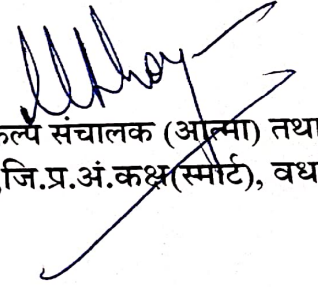 कल्प संचालक (आत्मा) तथा
,जि.प्र.अं.कक्ष(स्मार्ट), वर्ध